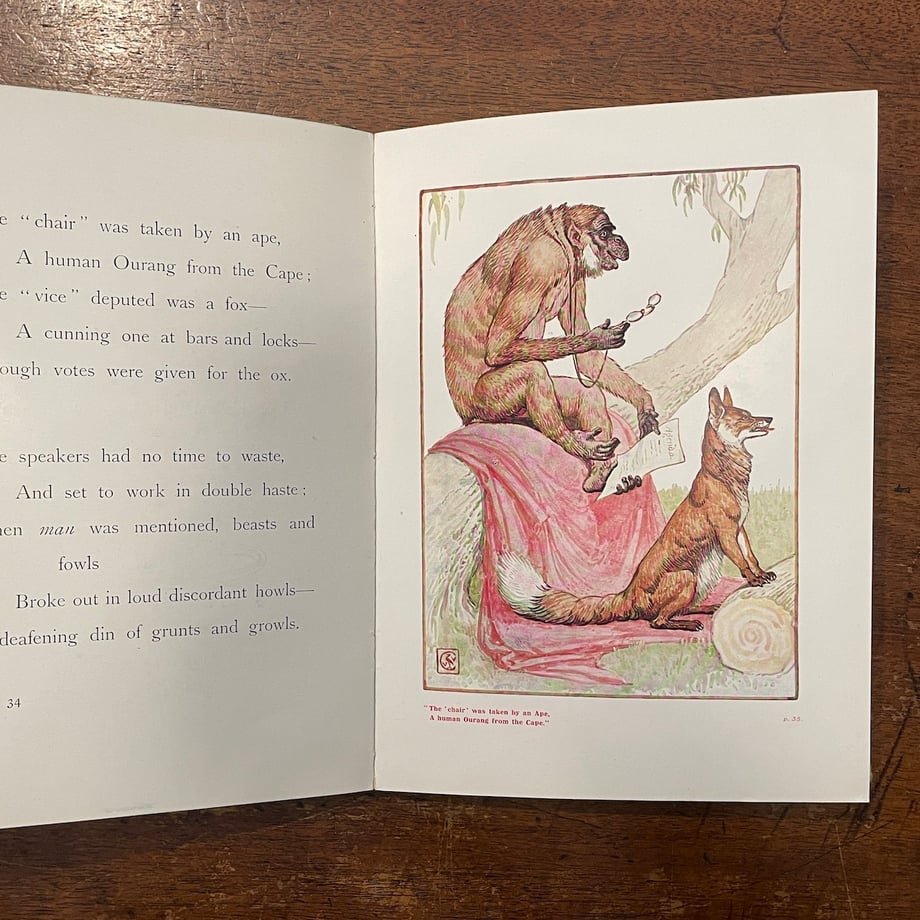 e “chair” was taken by an ape,
A human Ourang from the Cape;
e “vice” deputed was a fox—
A cunning one at bars and locks—
ough votes were given for the ox.
e speakers had no time to waste,
And set to work in double haste;
en man was mentioned, beasts and
fowls
Broke out in loud discordant howls—
deafening din of grunts and growls.
34
“The ‘chair’ was taken by an Ape,
A human Ourang from the Cape.”
p. 35.